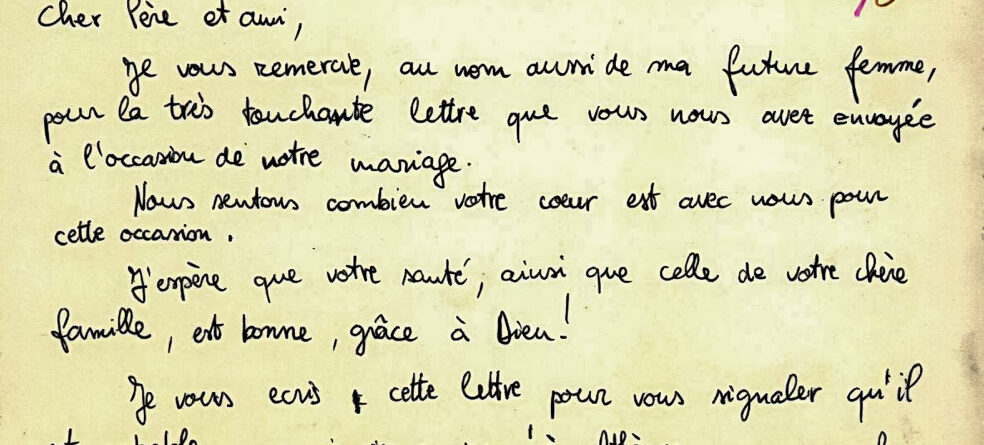 Cher Père et ami,
Je vous remercie, au nom aussi de ma future femme,
pour la très touchante lettre que vous nous avez envoyée
à l'occasion de notre mariage.
Nous sentons combien votre cœur est avec nous pour
cette occasion.
J'espère que votre santé, ainsi que celle de votre chère
famille, est bonne, grâce à Dieu!
Je vous ecris cette lettre pour vous signaler qu'il